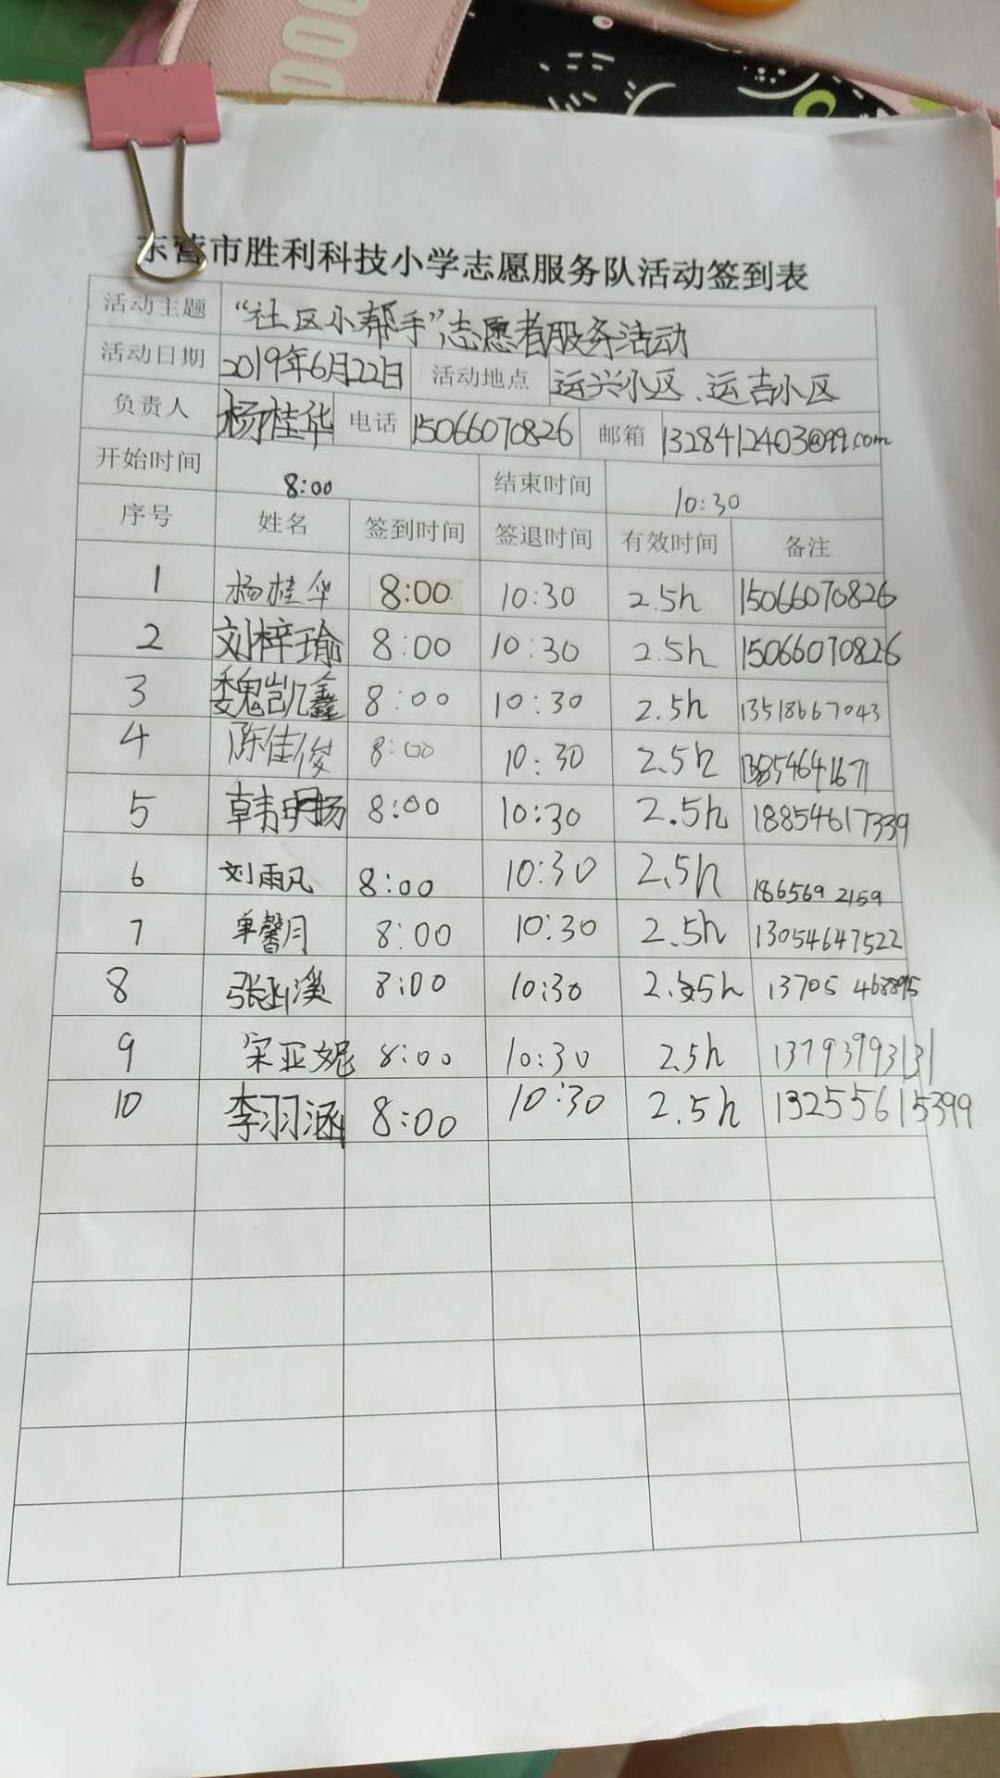 东营市胜利科技小学志愿服务队活动签到表
活动主题 “社区小帮手”志愿者服务活动
活动日期 2019年6月22日 活动地点 运兴小区、运吉小区
负责人 杨桂华 电话 15066070826 邮箱 1328412403@qq.com
开始时间 8:00 结束时间 10:30
序号 姓名 签到时间 签退时间 有效时间 备注
1 杨桂华 8:00 10:30 2.5h 15066070826
2 刘梓瑜 8:00 10:30 2.5h 15066070826
3 魏凯鑫 8:00 10:30 2.5h 13518667043
4 陈佳俊 8:00 10:30 2.5h 13854641671
5 韩明扬 8:00 10:30 2.5h 18854617339
6 刘雨凡 8:00 10:30 2.5h 186569 2159
7 单馨月 8:00 10:30 2.5h 13054647522
8 8:00 10:30 2.5h 13705
9 宋亚妮 8:00 10:30 2.5h 13793793131
10 李羽涵 8:00 10:30 2.5h 13255615399